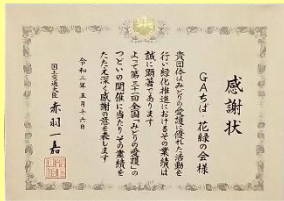 感謝状
GAちば 花緑の会様
貴団体はみどりの愛護に優れた活動を
行い緑化推進におけるその業績は
誠に顕著であります
よって第三十一回全国「みどりの愛護」の
つどいの開催に当たりその業績を
たたえ深く感謝の意を表します
令和二年五月十六日
国土交通大臣 赤羽一嘉